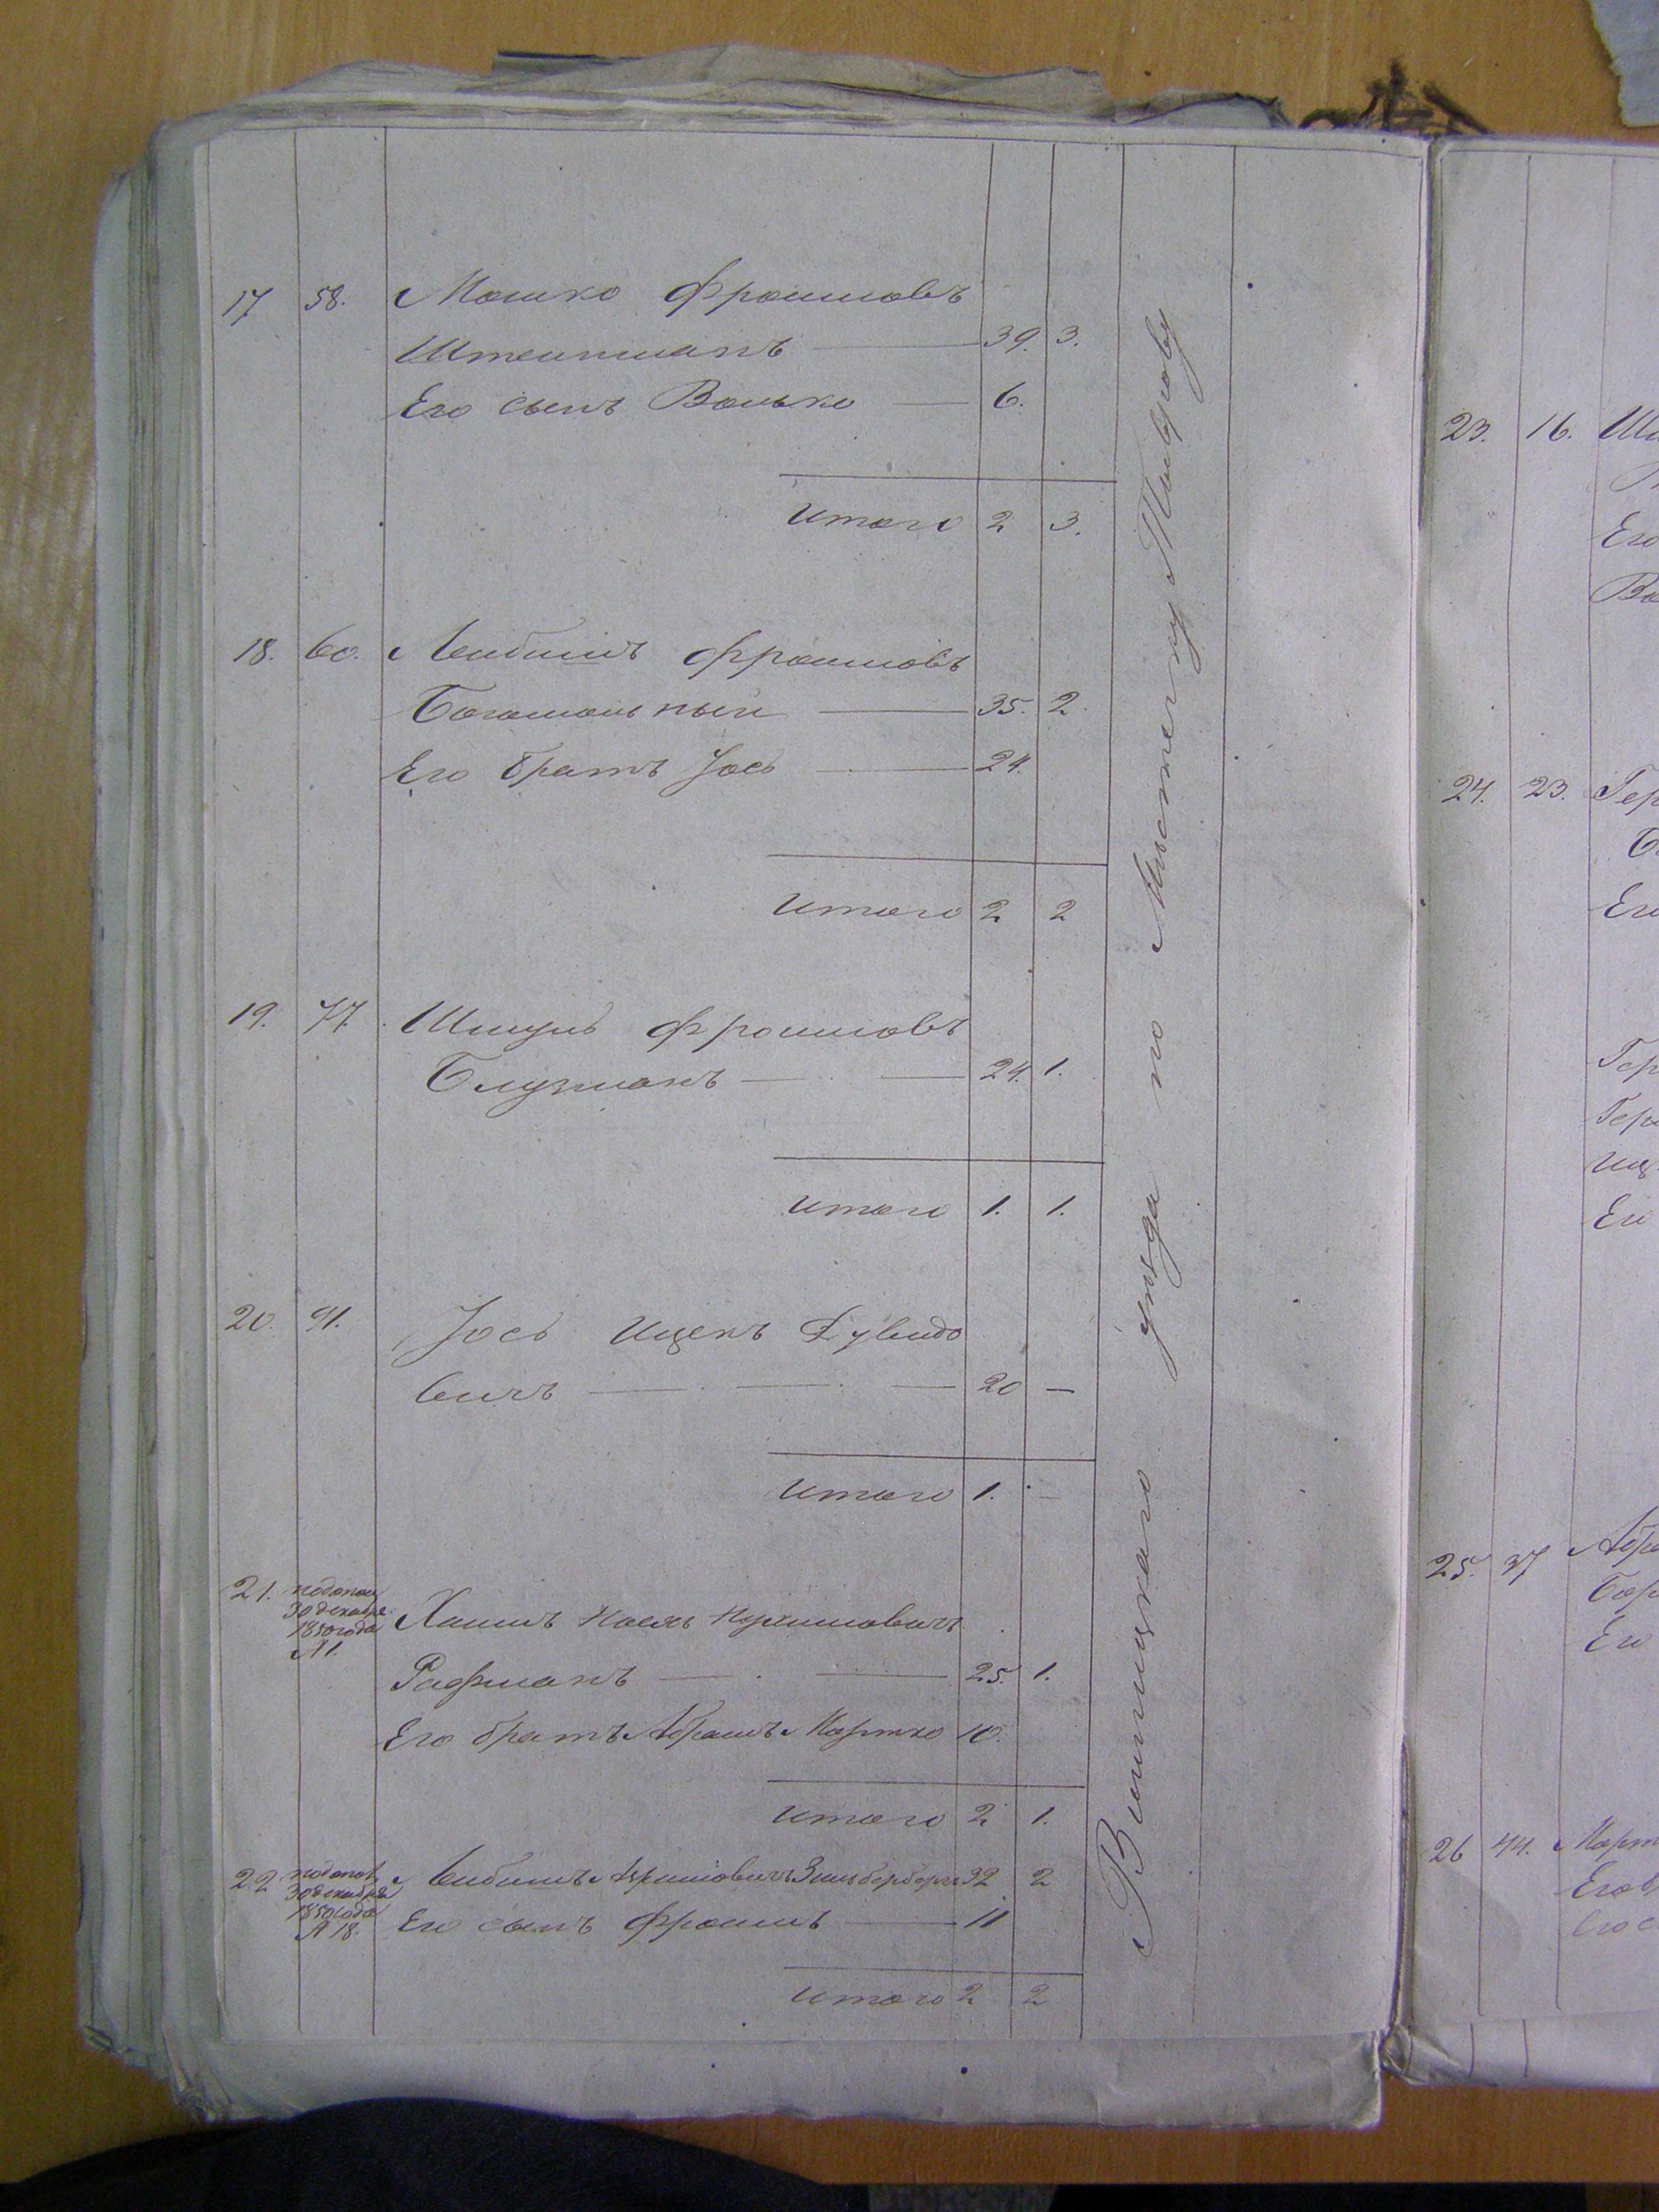 17 58. Мошко Фроимовъ
Штейнманъ — 39. 3.
Его сынъ Волько — 6.
Итого 2 3.
18. 60. Лейбишъ Фроимовъ
Богомольный — 35. 2.
Его братъ Іось — 24.
Итого 2 2
19. 77. Шмуль Фроимовъ
Блузманъ — 24. 1.
Итого 1. 1.
20. 91. Іось Ицекъ Дувидо
вичъ — 20 —
Итого 1. —
21. по допол
30 декабря
1850 года
№ 1. Хаимъ Нухимовичъ
Рафманъ — 25. 1.
Его братъ Абрамъ Мортко 10.
Итого 2 1.
22 по допол
30 декабря
1850 года
№ 18. Лейбишъ Зильбербергъ 32 2
Его сынъ Фроимъ — 11
Итого 2 2
Винницкаго уѣзда по Мѣстечку Тыврову
23. 16.
Его
24. 23.
25. 37
Его
26 44.